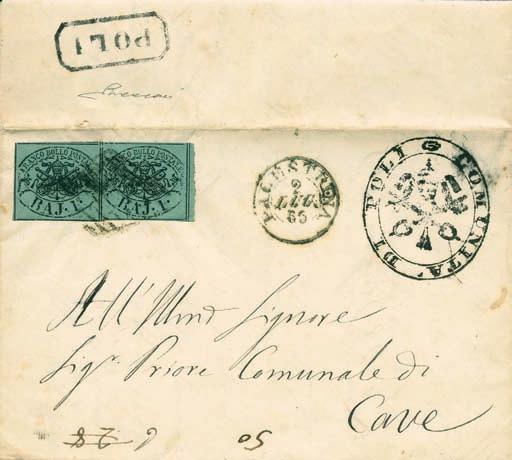 POLI
FRANCO BOLLO POSTALE
BAJ. 1.
FRANCO BOLLO POSTALE
BAJ. 1.
PALESTRINA
2
LUG
65
COMUNITA' DI POLI
All' Illmo Signore
Sigr. Priore Comunale di
Cave
50